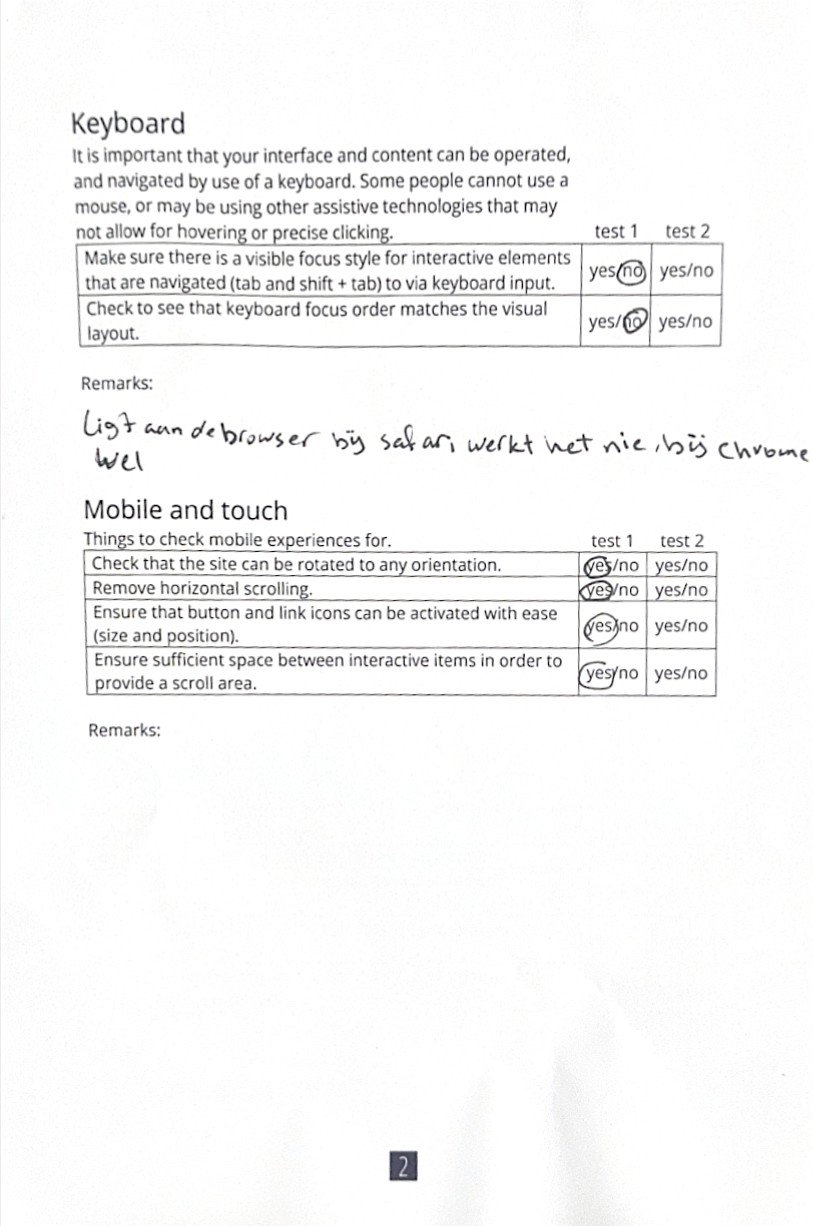 Keyboard
It is important that your interface and content can be operated,
and navigated by use of a keyboard. Some people cannot use a
mouse, or may be using other assistive technologies that may
not allow for hovering or precise clicking. test 1 test 2
Make sure there is a visible focus style for interactive elements
that are navigated (tab and shift + tab) to via keyboard input. yes/no yes/no
Check to see that keyboard focus order matches the visual
layout. yes/no yes/no
Remarks:
Ligt aan de browser bij safari werkt het nie, bij chrome
wel
Mobile and touch
Things to check mobile experiences for. test 1 test 2
Check that the site can be rotated to any orientation. yes/no yes/no
Remove horizontal scrolling. yes/no yes/no
Ensure that button and link icons can be activated with ease
(size and position). yes/no yes/no
Ensure sufficient space between interactive items in order to
provide a scroll area. yes/no yes/no
Remarks:
2